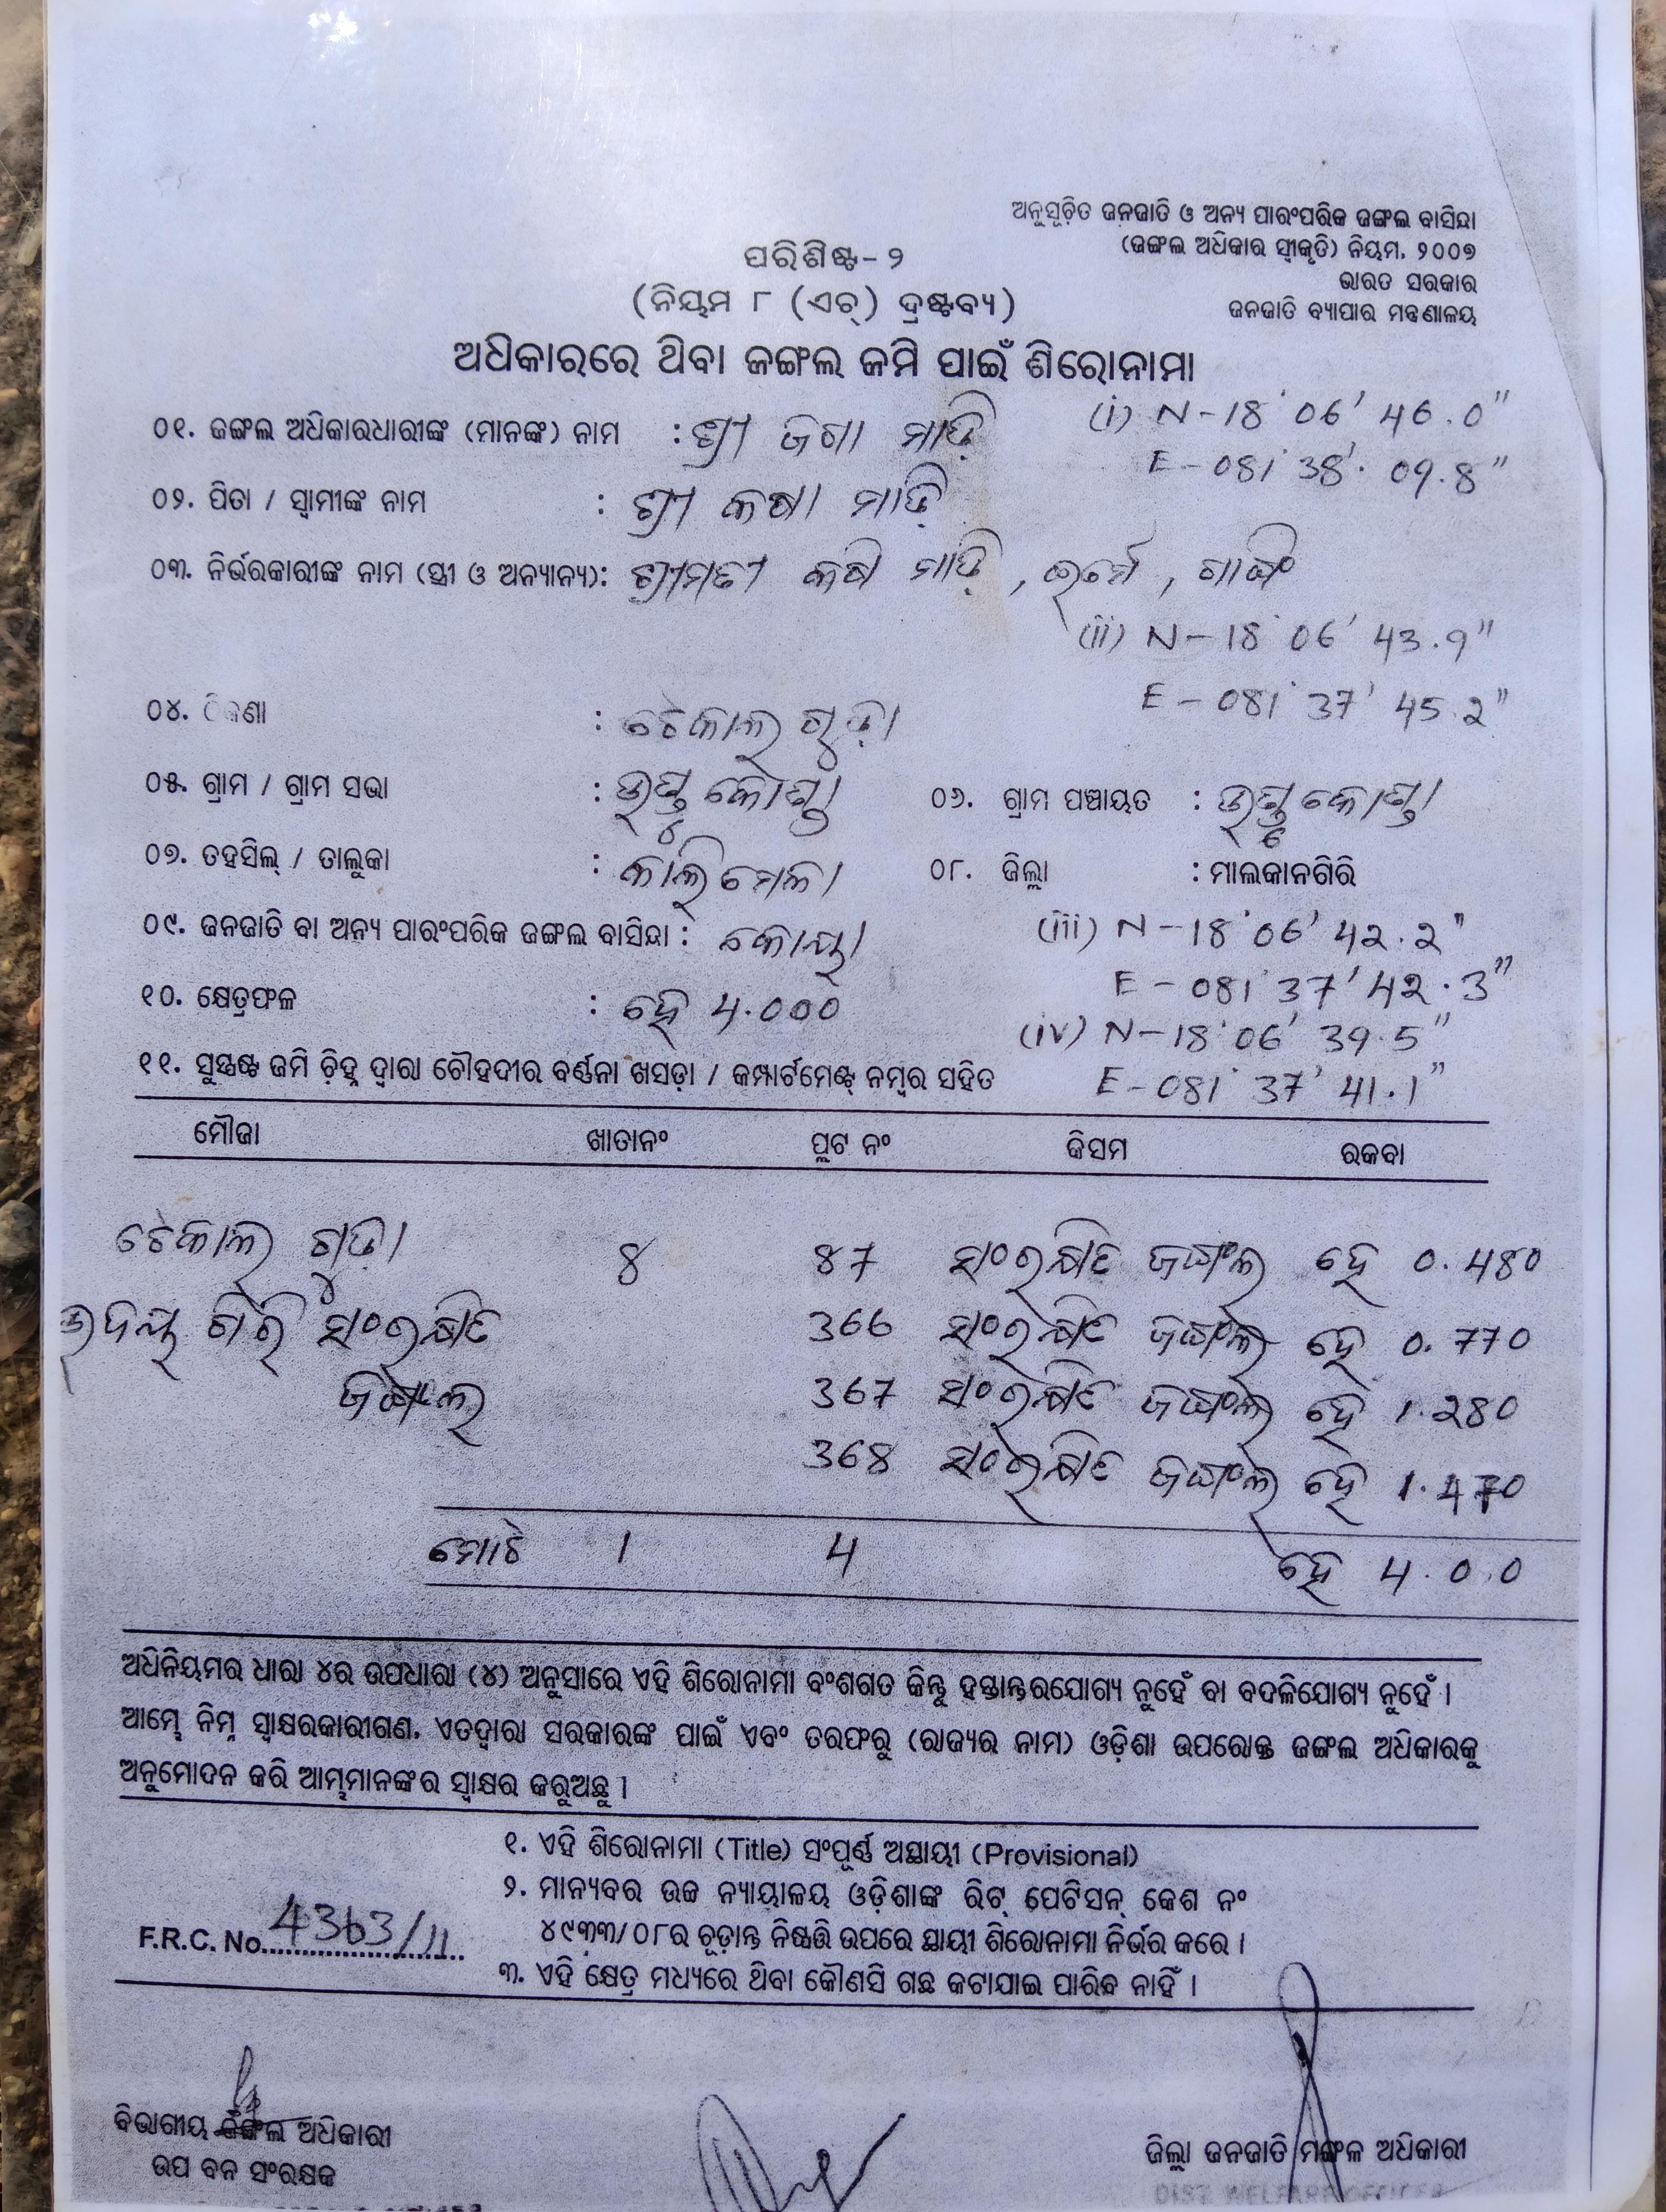 ଅନୁସୂଚିତ ଜନଜାତି ଓ ଅନ୍ୟ ପାରଂପରିକ ଜଙ୍ଗଲ ବାସିନ୍ଦା
(ଜଙ୍ଗଲ ଅଧିକାର ସ୍ୱୀକୃତି) ନିୟମ, ୨୦୦୭
ଭାରତ ସରକାର
ଜନଜାତି ବ୍ୟାପାର ମନ୍ତ୍ରଣାଳୟ
ପରିଶିଷ୍ଟ- ୨
(ନିୟମ ୮ (ଏଚ୍) ଦ୍ରଷ୍ଟବ୍ୟ)
ଅଧିକାରରେ ଥିବା ଜଙ୍ଗଲ ଜମି ପାଇଁ ଶିରୋନାମା
୦୧. ଜଙ୍ଗଲ ଅଧିକାରଧାରୀଙ୍କ (ମାନଙ୍କ) ନାମ : ଶ୍ରୀ ଜିଗା ମାଡ଼ି
(i) N-18° 06' 46.0"
E-081° 38' 09.8"
୦୨. ପିତା / ସ୍ୱାମୀଙ୍କ ନାମ : ଶ୍ରୀ କଷା ମାଡ଼ି
୦୩. ନିର୍ଭରକାରୀଙ୍କ ନାମ (ସ୍ତ୍ରୀ ଓ ଅନ୍ୟାନ୍ୟ): ଶ୍ରୀମତୀ ମାଡ଼ି
(ii) N-18° 06' 43.9"
E-081° 37' 45.2"
୦୪. ଠିକଣା : ଟେକାଲ ଗୁଡ଼ା
୦୫. ଗ୍ରାମ / ଗ୍ରାମ ସଭା :
୦୬. ଗ୍ରାମ ପଞ୍ଚାୟତ :
୦୭. ତହସିଲ୍ / ତାଲୁକା : କାଲିମେଳା
୦୮. ଜିଲ୍ଲା : ମାଲକାନଗିରି
୦୯. ଜନଜାତି ବା ଅନ୍ୟ ପାରଂପରିକ ଜଙ୍ଗଲ ବାସିନ୍ଦା : କୋୟା
(iii) N-18° 06' 42.2"
E-081° 37' 42.3"
୧୦. କ୍ଷେତ୍ରଫଳ : ହେ 4.000
(iv) N-18° 06' 39.5"
E-081° 37' 41.1"
୧୧. ସୁସ୍ପଷ୍ଟ ଜମି ଚିହ୍ନ ଦ୍ୱାରା ଚୌହଦୀର ବର୍ଣ୍ଣନା ଖସଡ଼ା / କମ୍ପାର୍ଟମେଣ୍ଟ୍ ନମ୍ବର ସହିତ
ମୌଜା ଖାତାନଂ ପ୍ଲଟ ନଂ କିସମ ରକବା
ଟେକାଲ ଗୁଡା ୪ ୪7 ସଂରକ୍ଷିତ ଜଙ୍ଗଲ ହେ 0.480
ଉଦୟ ଗିରି ସଂରକ୍ଷିତ 366 ସଂରକ୍ଷିତ ଜଙ୍ଗଲ ହେ 0.770
ଜଙ୍ଗଲ 367 ସଂରକ୍ଷିତ ଜଙ୍ଗଲ ହେ 1.280
368 ସଂରକ୍ଷିତ ଜଙ୍ଗଲ ହେ 1.470
ମୋଟ 1 4 ହେ 4.0.0
ଅଧିନିୟମର ଧାରା ୪ର ଉପଧାରା (୪) ଅନୁସାରେ ଏହି ଶିରୋନାମା ବଂଶଗତ କିନ୍ତୁ ହସ୍ତାନ୍ତରଯୋଗ୍ୟ ନୁହେଁ ବା ବଦଳିଯୋଗ୍ୟ ନୁହେଁ ।
ଆମ୍ଭେ ନିମ୍ନ ସ୍ୱାକ୍ଷରକାରୀଗଣ, ଏତଦ୍ୱାରା ସରକାରଙ୍କ ପାଇଁ ଏବଂ ତରଫରୁ (ରାଜ୍ୟର ନାମ) ଓଡ଼ିଶା ଉପରୋକ୍ତ ଜଙ୍ଗଲ ଅଧିକାରକୁ
ଅନୁମୋଦନ କରି ଆମ୍ଭମାନଙ୍କର ସ୍ୱାକ୍ଷର କରୁଅଛୁ ।
୧. ଏହି ଶିରୋନାମା (Title) ସଂପୂର୍ଣ୍ଣ ଅସ୍ଥାୟୀ (Provisional)
୨. ମାନ୍ୟବର ଉଚ୍ଚ ନ୍ୟାୟାଳୟ ଓଡ଼ିଶାଙ୍କ ରିଟ୍ ପେଟିସନ୍ କେଶ ନଂ
୪୯୩୩/୦୮ର ଚୂଡ଼ାନ୍ତ ନିଷ୍ପତ୍ତି ଉପରେ ସ୍ଥାୟୀ ଶିରୋନାମା ନିର୍ଭର କରେ ।
F.R.C. No. 4363/11
୩. ଏହି କ୍ଷେତ୍ର ମଧ୍ୟରେ ଥିବା କୌଣସି ଗଛ କଟାଯାଇ ପାରିବ ନାହିଁ ।
ବିଭାଗୀୟ ଜଙ୍ଗଲ ଅଧିକାରୀ
ଉପ ବନ ସଂରକ୍ଷକ
ଜିଲ୍ଲା ଜନଜାତି ମଙ୍ଗଳ ଅଧିକାରୀ
DIST WELFARE OFFICER